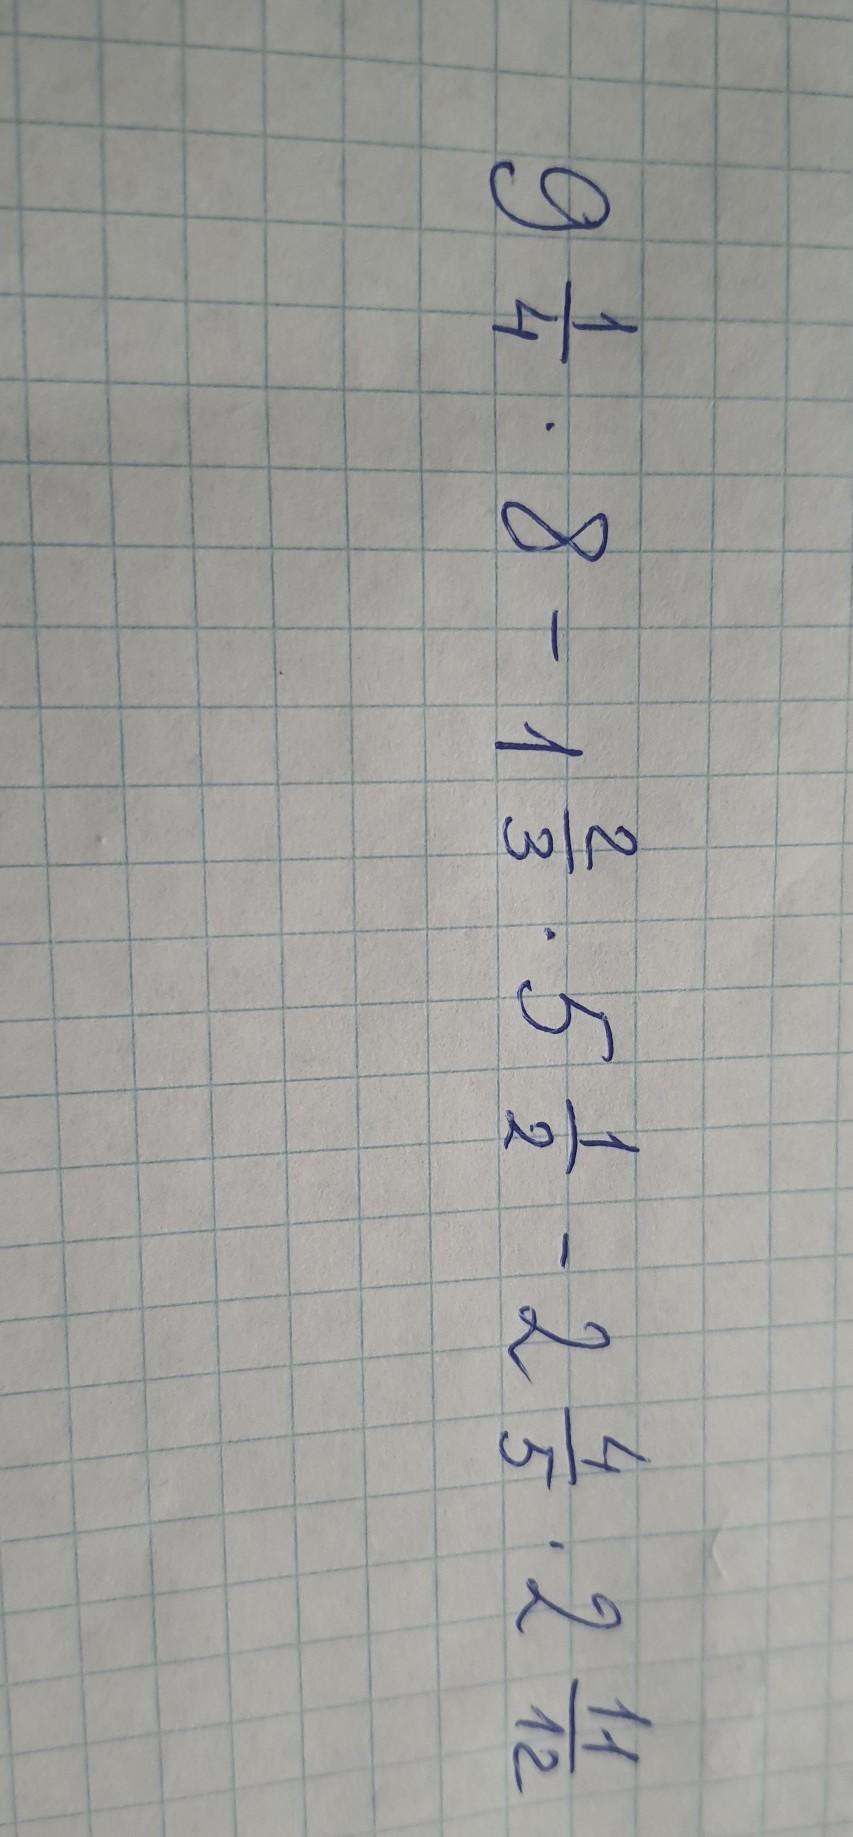 9 1/4 · 8 - 1 2/3 · 5 1/2 - 2 4/5 · 2 11/12